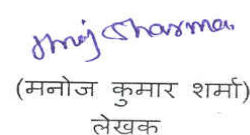 Manoj Sharma
(मनोज कुमार शर्मा)
लेखक